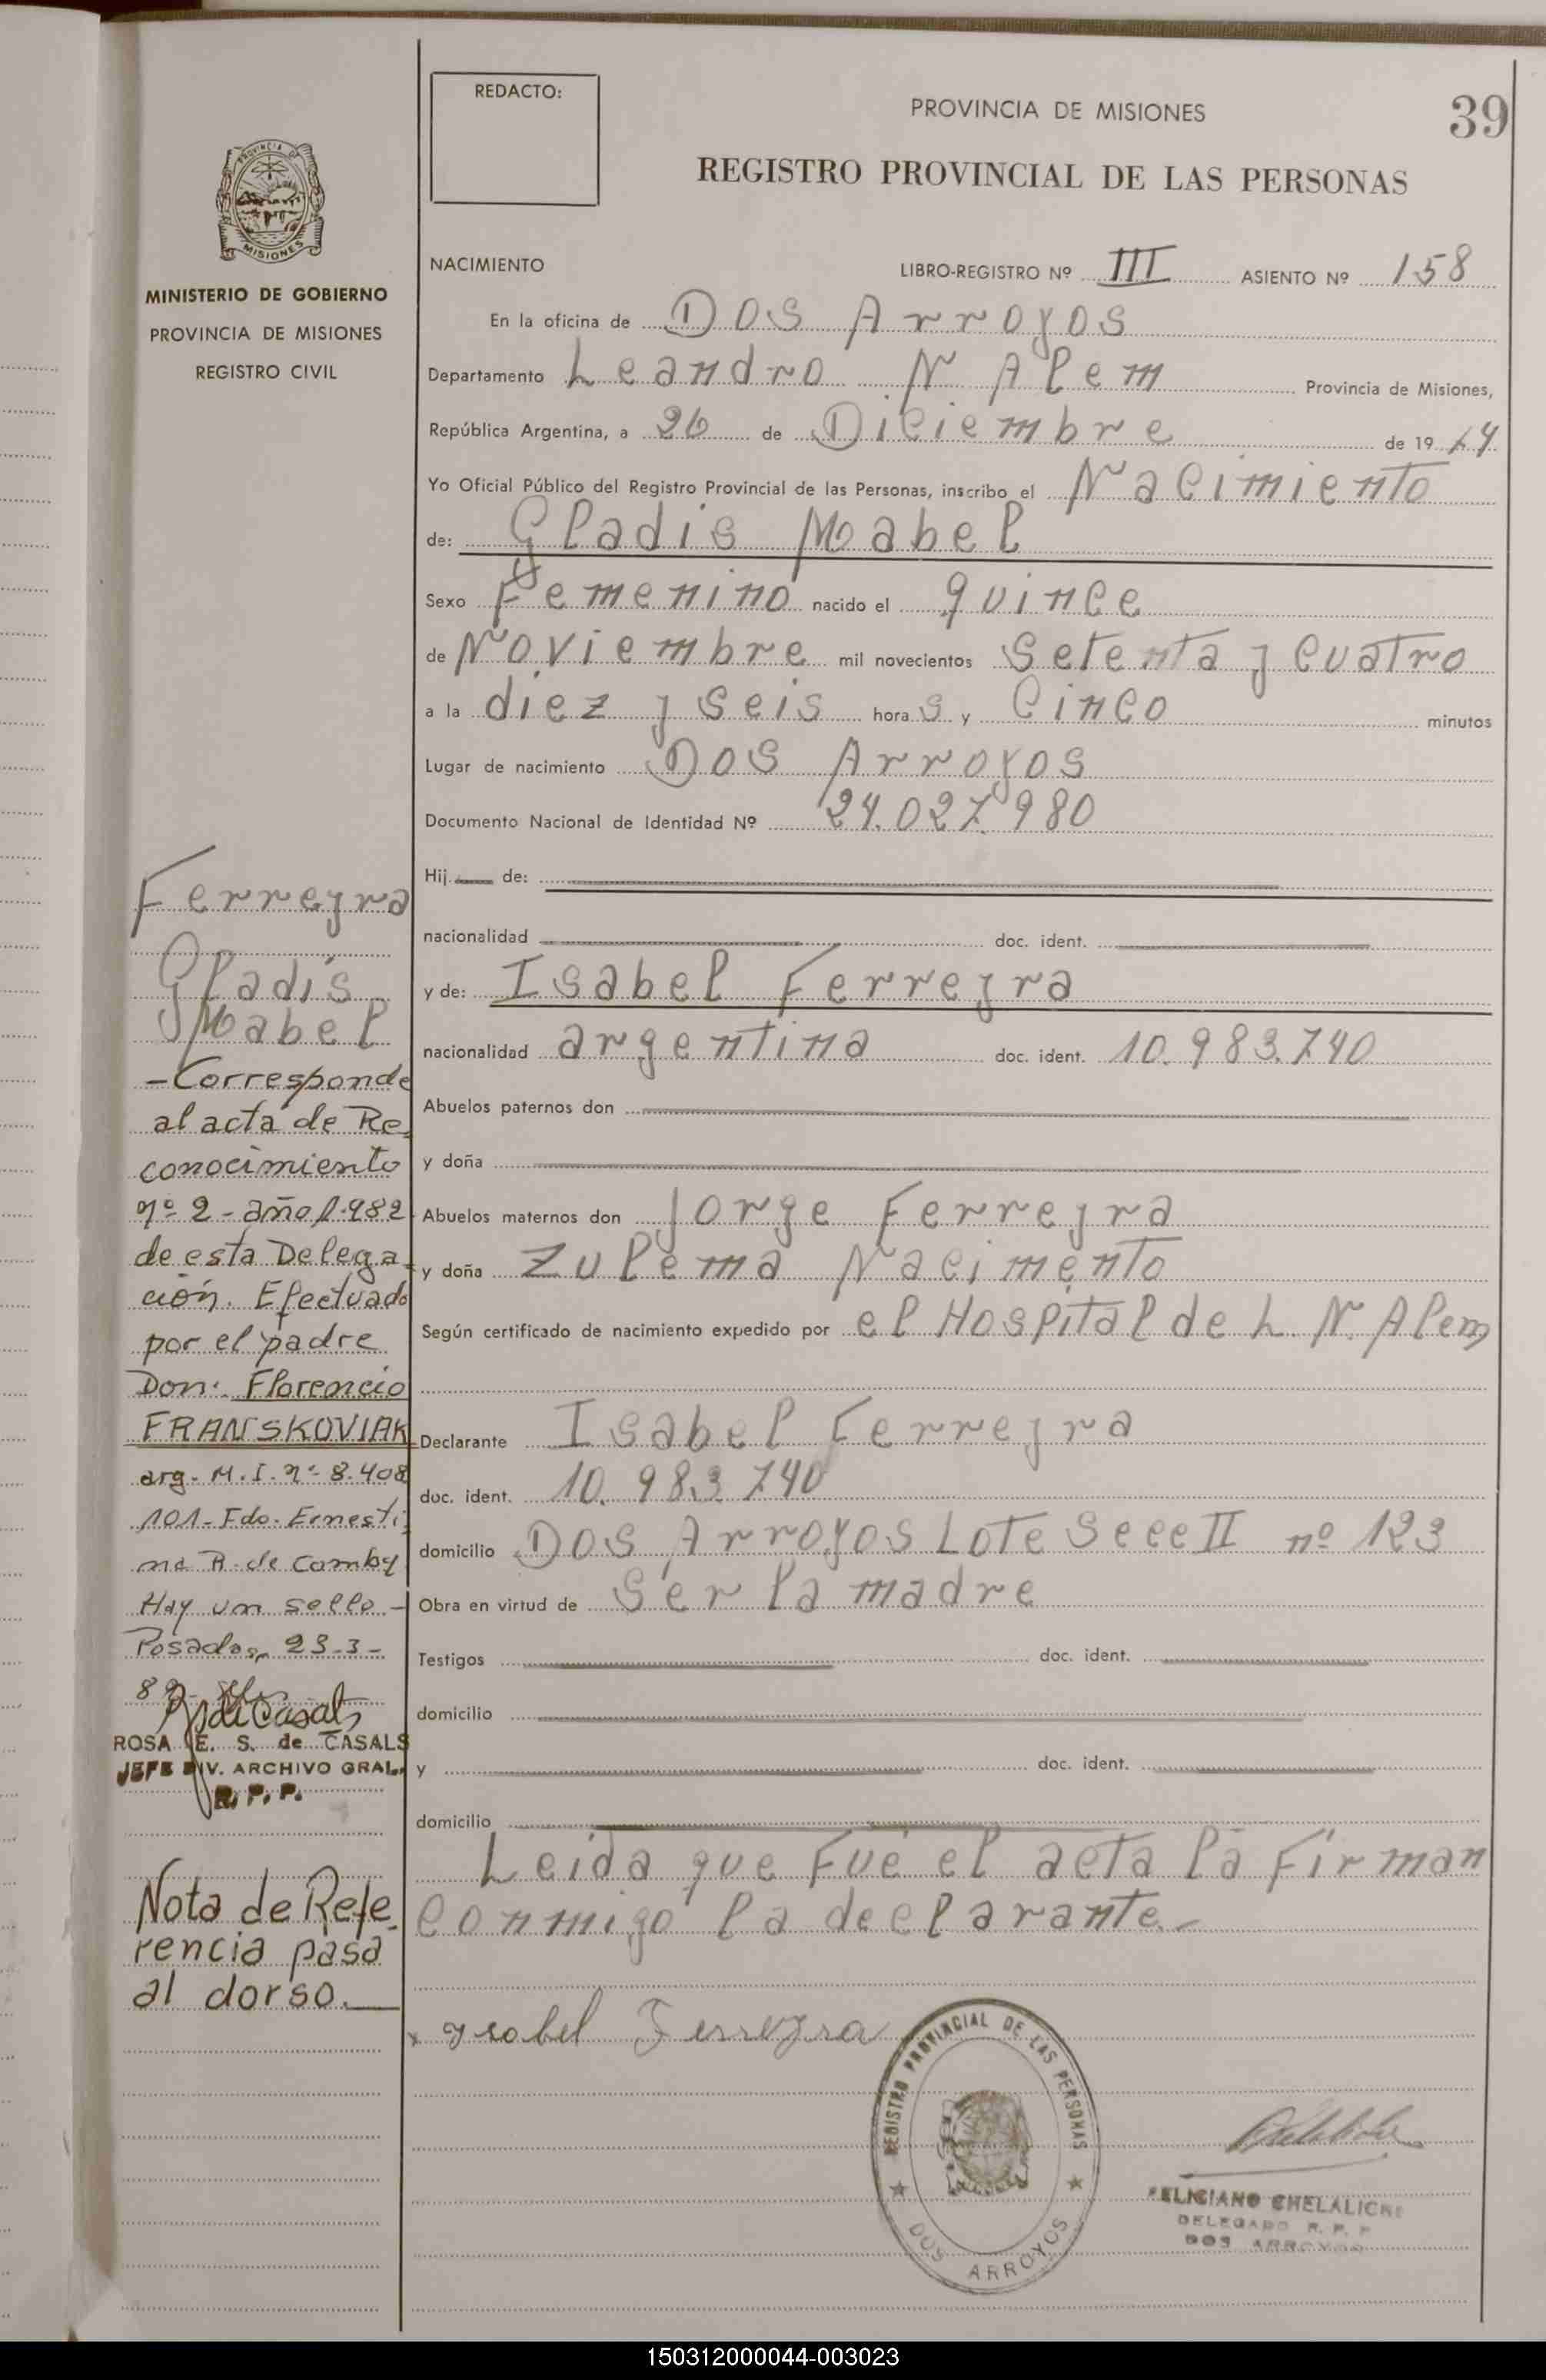 REDACTO:
PROVINCIA DE MISIONES
39
REGISTRO PROVINCIAL DE LAS PERSONAS
PROVINCIA DE
MISIONES
MINISTERIO DE GOBIERNO
PROVINCIA DE MISIONES
REGISTRO CIVIL
NACIMIENTO
LIBRO-REGISTRO Nº III ASIENTO Nº 158
En la oficina de Dos Arroyos
Departamento Leandro N Alem Provincia de Misiones,
República Argentina, a 26 de Diciembre de 1974
Yo Oficial Público del Registro Provincial de las Personas, inscribo el Nacimiento
de: Gladis Mabel
Sexo Femenino nacido el quince
de Noviembre mil novecientos Setenta y cuatro
a la diez y seis hora s y Cinco minutos
Lugar de nacimiento Dos Arroyos
Documento Nacional de Identidad Nº 24.027.980
Hij de:
nacionalidad doc. ident.
y de: Isabel Ferreyra
nacionalidad argentina doc. ident. 10.983.740
Abuelos paternos don
y doña
Abuelos maternos don Jorge Ferreyra
y doña Zulema Nacimento
Según certificado de nacimiento expedido por el Hospital de L. N. Alem
Declarante Isabel Ferreyra
doc. ident. 10.983.740
domicilio Dos Arroyos Lote Secc II nº 123
Obra en virtud de Ser la madre
Testigos doc. ident.
domicilio
y doc. ident.
domicilio
Leida que Fué el acta la Firman
conmigo la declarante.-
Ysabel Ferreyra
REGISTRO PROVINCIAL DE LAS PERSONAS
DOS ARROYOS
FELICIANO CHELALICHE
DELEGADO R. P. P
DOS ARROYOS
Ferreyra
Gladis
Mabel
-Corresponde
al acta de Re-
conocimiento
nº 2 - año 1.982
de esta Delega-
ción. Efectuado
por el padre
Don: Florencio
FRANSKOVIAK
arg- M.I. nº 8.408
101- Fdo. Ernesti-
na R. de Comby
Hay un sello -
Posadas, 23-3-
ROSA E. S. de CASALS
JEFE DIV. ARCHIVO GRAL.
R. P. P.
Nota de Refe-
rencia pasa
al dorso.
150312000044-003023